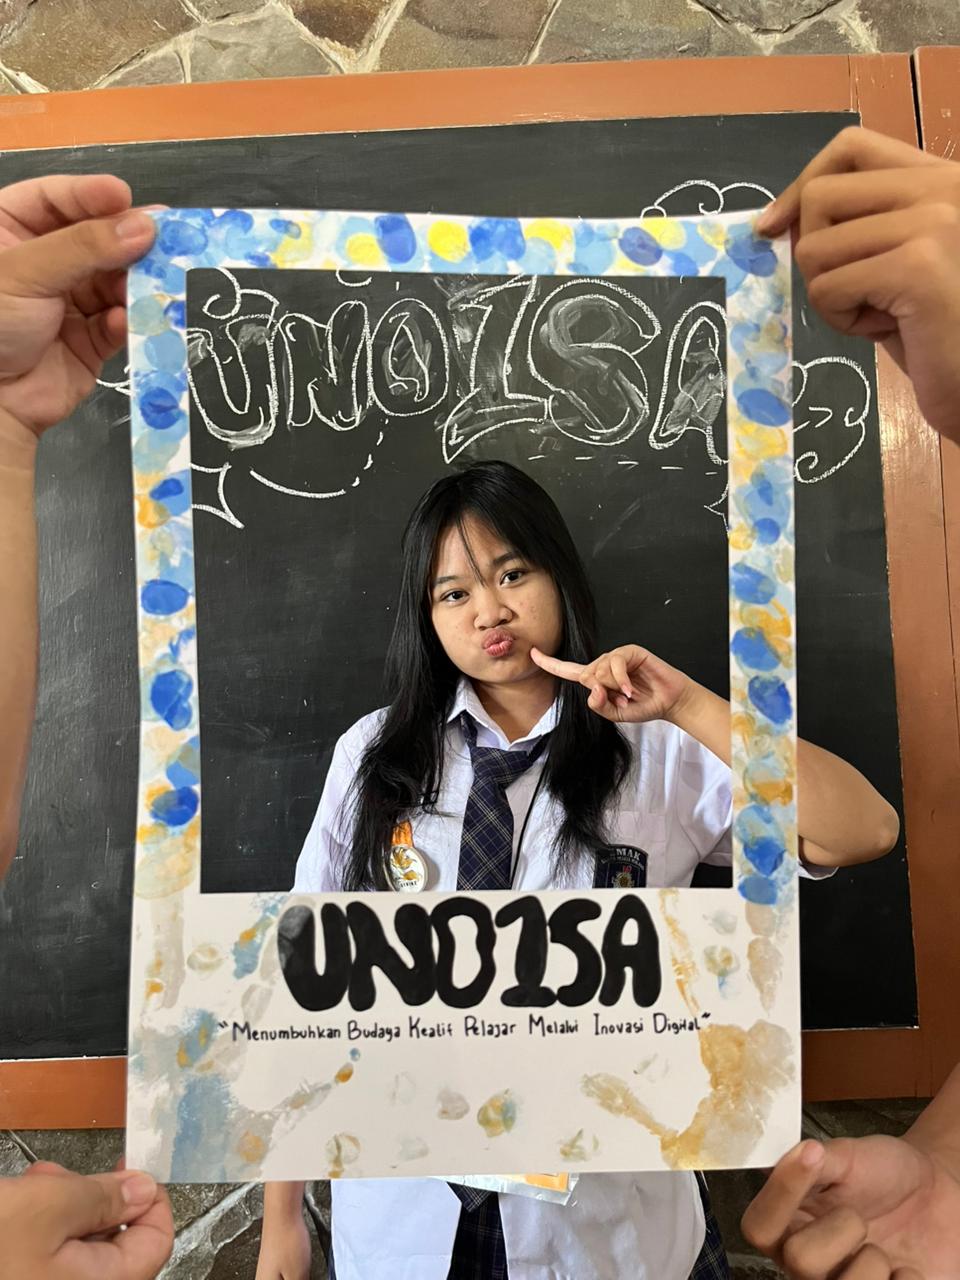 UNOISA
SMAK
UNOISA
"Menumbuhkan Budaya Keatif Pelajar Melalui Inovasi Digital"